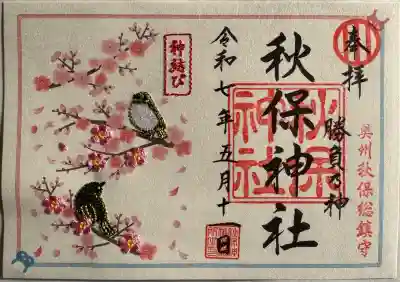 奉拝
奥州秋保総鎮守
勝負の神
秋保神社
秋保神社
令和七年五月十一日
神結び